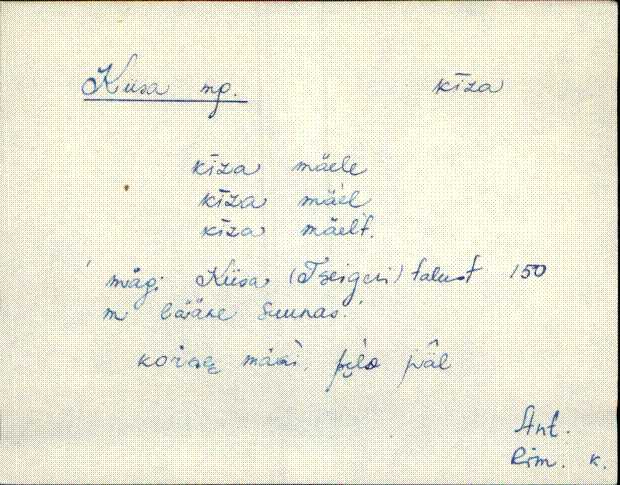 Kiisa mp. kīza
kīza mäele
kīza mäel
kīza mäelt.
mägi Kiisa (Tseigeri) talust 150
m lääne suunas.
mäġi, pè̬lo pāl
Ant.
Rim. k.